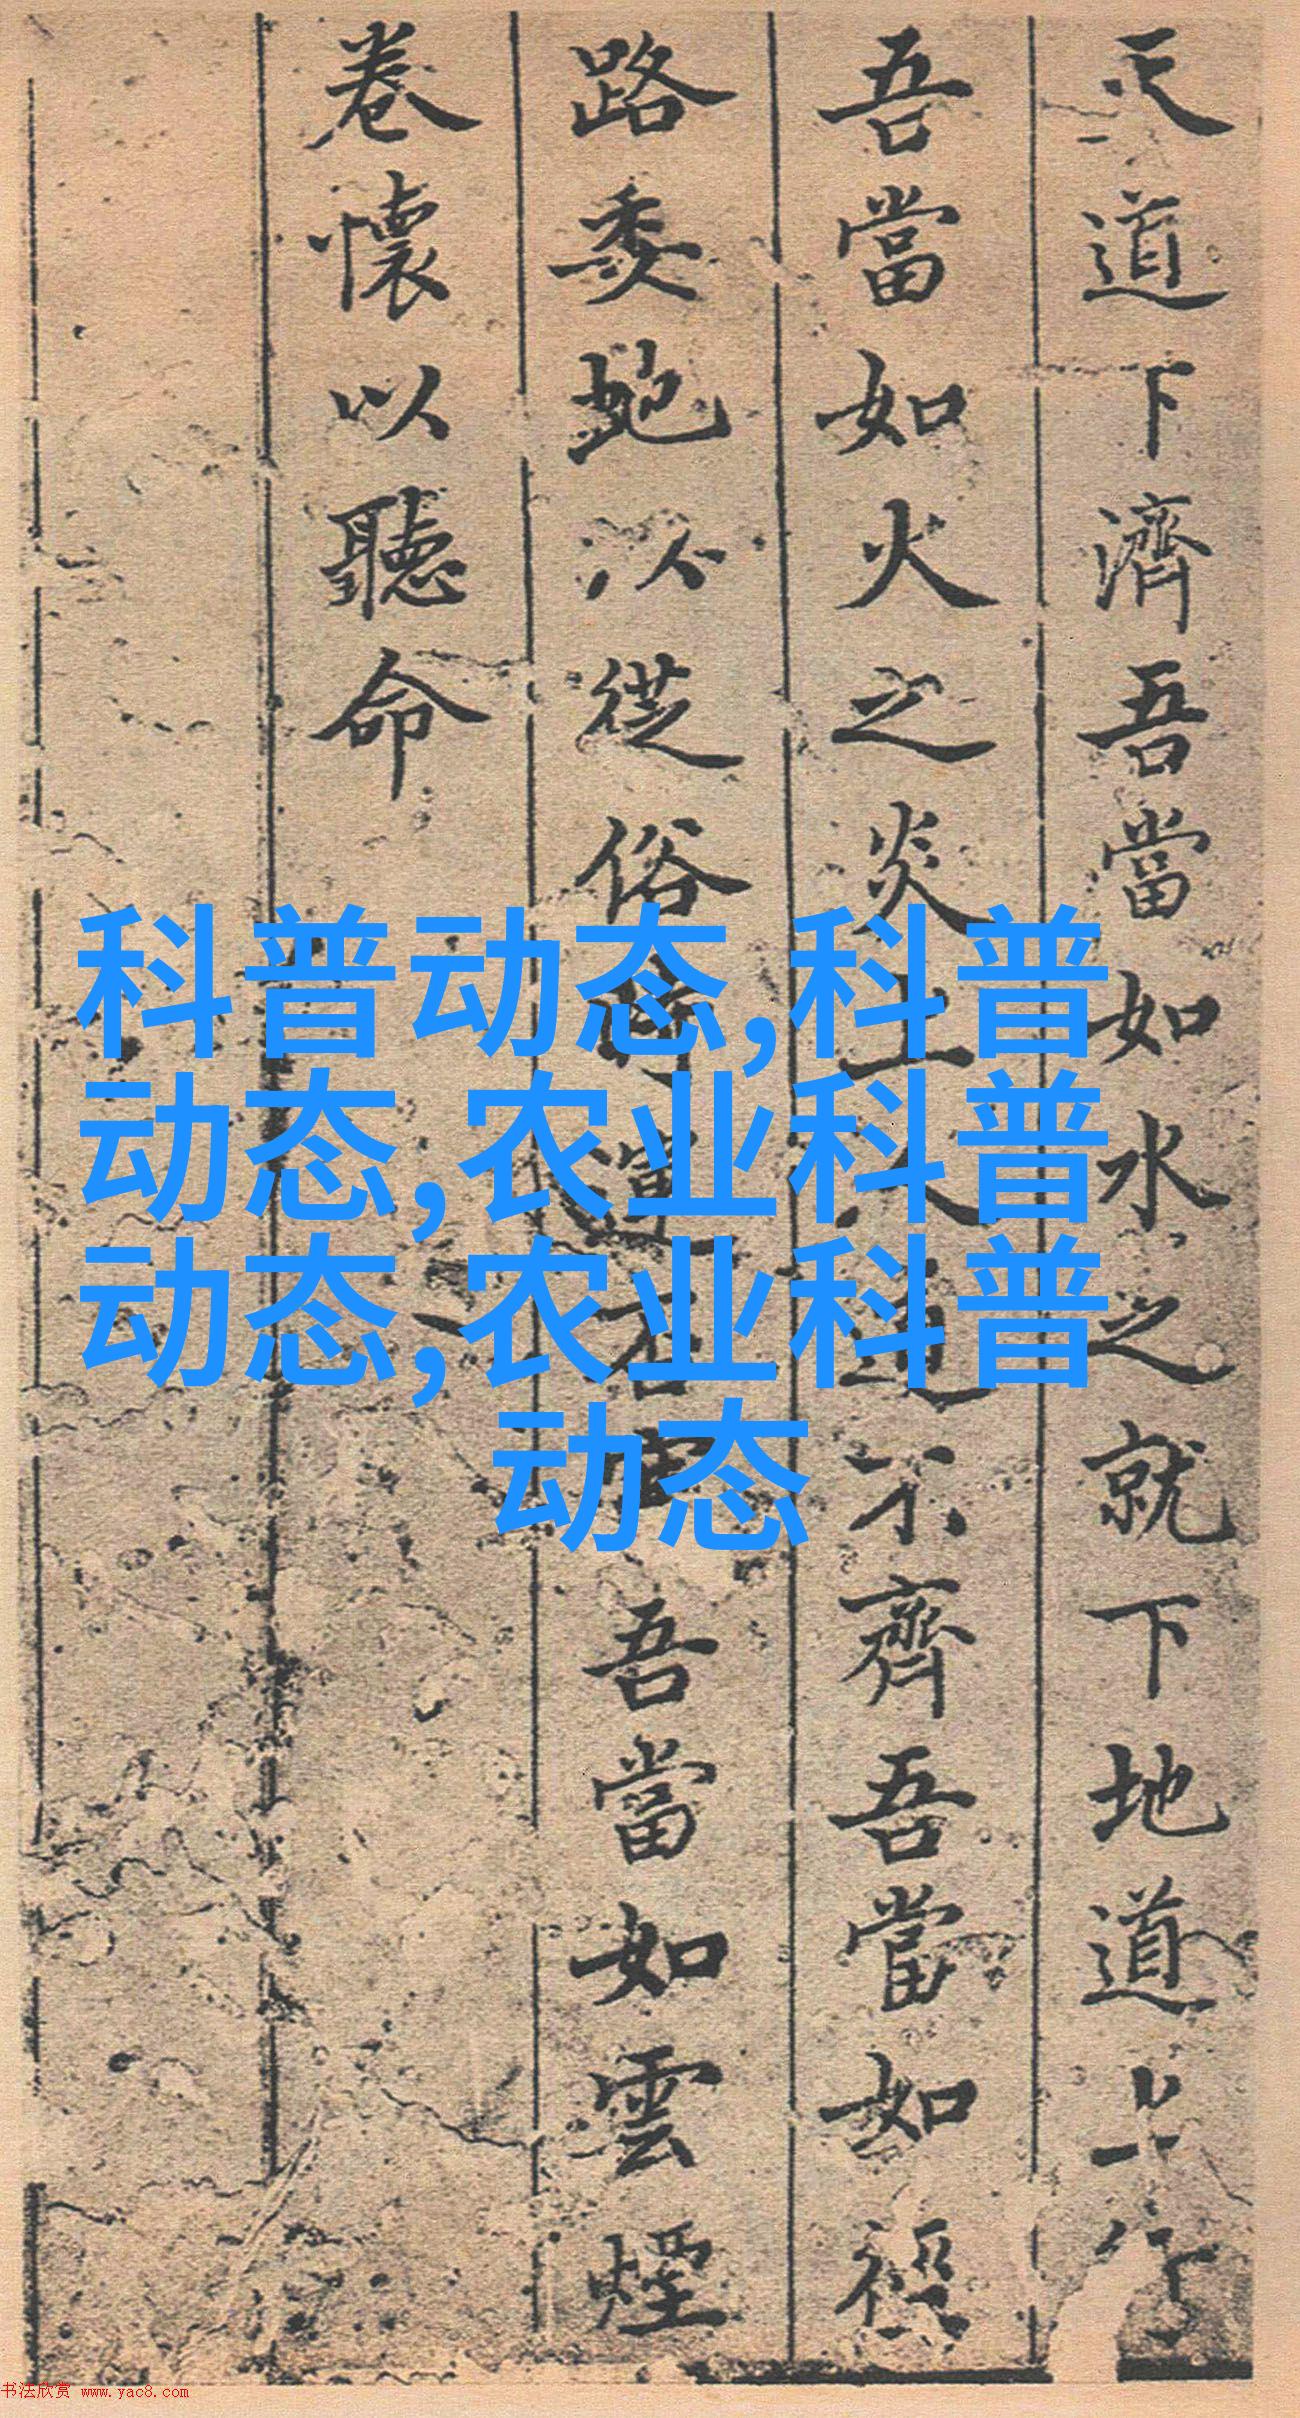 天道下濟吾當如水之就下地道上行
吾當如火之炎上人道不齊吾當如
路委虵以從俗吾當如雲煙
卷懷以聽命
科普动态,科普
动态,农业科普
动态,农业科普
动态
书法欣赏 www.yac8.com